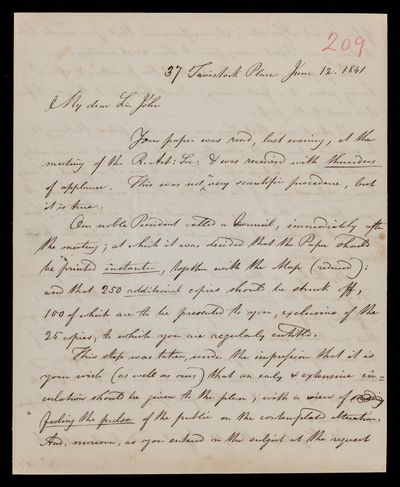 209
37 Tavistock Place June 12. 1841
My dear Sir John
Your paper was read, last evening, at the
meeting of the R. Ast: Soc: & was received with thunders
of applause. This was not, very scientific procedure, but
it is true.
Our noble President called a Council, immediately after
the meeting; at which it was decided that the Paper should
be printed instanter, together with the Map (reduced):
and that 250 additional copies should be struck off,
100 of which are to be presented to you, exclusive of the
25 copies, to which you are regularly entitled.
This step was taken, under the impression that it is
your wish (as well as ours) that an early & extensive cir=
culation should be given to the plan, with a view of
feeling the pulse of the public on the contemplated alteration.
And, moreover, as you entered on the subject at the request